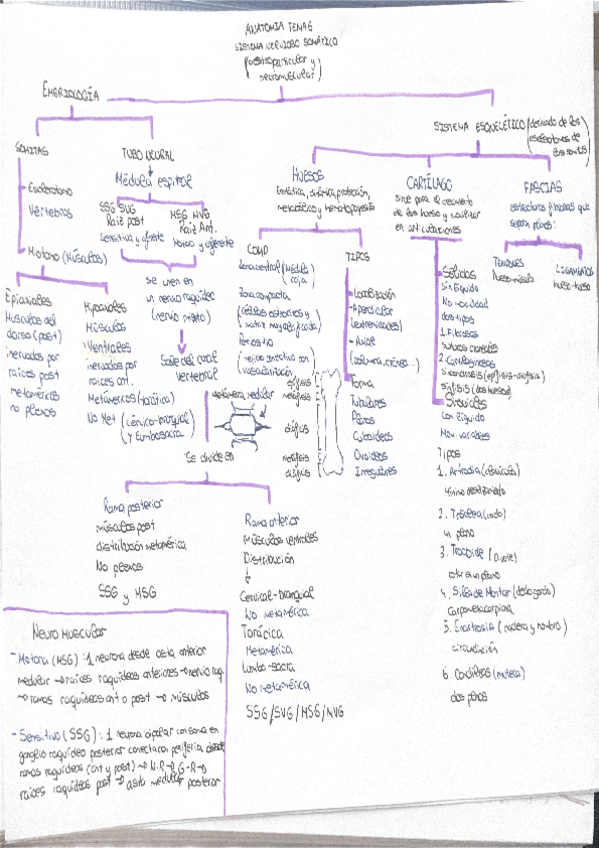 ANATOMIA TEMA 6
SISTEMA NERVIOSO SOMÁTICO
(osteoarticular y
neuromuscular)
EMBRIOLOGÍA
SOMITAS
Esclerotomo
Vértebras
Miotomo (Músculos)
Epiaxiales
Músculos del
dorso (post)
inervados por
raíces post
metaméricos
no plexos
Hipoaxiales
Músculos
Ventrales
inervados por
raíces ant.
Metámeros (torática)
No Met (cérvico-braquial
y lumbosacra)
TUBO NEURAL
Médula espinal
SSG SVG
Raíz post
Sensitiva y aferente
MSG MVG
Raíz Ant.
Motora y eferente
se unen en
un nervio raquídeo
(nervio mixto)
Sale del canal
vertebral
metámera medular
Se divide en
Rama posterior
músculos post
distribución metamérica
No plexos
SSG y MSG
Rama anterior
Músculos ventrales
Distribución
Cervical-Branquial
No metamérica
Torácica
Metamérica
Lumbo-sacra
No metamérica
SSG/SVG/MSG/MVG
SISTEMA ESQUELÉTICO (derivado de los
esclerotomos de
los somitas)
HUESOS
Estática, dinámica, protección,
metabólico y hematopoyesis
COMP
Zona central (Médula
roja)
Zona compacta
(células osteocitos y
matriz muy calcificada)
Periostio
(tejido conectivo con
vascularización)
epífisis
metáfisis
diáfisis
metáfisis
diáfisis
TIPOS
Localización
- Apendicular
(extremidades)
- Axial
(columna, cráneo...)
Forma
Tubulares
Planos
Cuboideos
Ovoideos
Irregulares
CARTÍLAGO
Sirve para el crecimiento
de los hueso y facilitar
en articulaciones
Sólidas
Sin líquido
No movilidad
dos tipos
1. Fibrosas
suturas craneales
2. Cartilaginosas
Sincondrosis (epífisis-diáfisis)
Sínfisis (dos huesos)
Sinoviales
Con líquido
Mov. variables
Tipos
1. Artrodia (clavícula)
Mínimo deslizamiento
2. Tróclea (codo)
un plano
3. Trocoide (Pivote)
rotar en un plano
4. Silla de Montar (dedo gordo)
Carpometacarpiana
5. Enartrosis (cadera y hombro)
circunducción
6. Condíleas (muñeca)
dos planos
FASCIAS
estructuras fibrosas que
separan planos:
TENDONES
hueso-músculo
LIGAMENTOS
hueso-hueso
NEURO MUSCULAR
- Motora (MSG): 1 neurona desde asta anterior
medular → raíces raquídeas anteriores → nervio raq.
→ ramas raquídeas ant o post → músculos
- Sensitivo (SSG): 1 neurona bipolar con soma en
ganglio raquídeo posterior conectan periferia desde
ramas raquídeas (ant y post) → N.R → G.R →
raíces raquídeas post → asta medular posterior